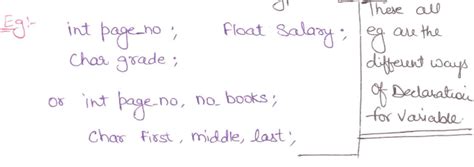 Eg:-
int page_no ; Float Salary ;
Char grade ;
or int page_no, no_books;
Char First, middle, last ;
These all
eg are the
different ways
of Declaration
for Variable.